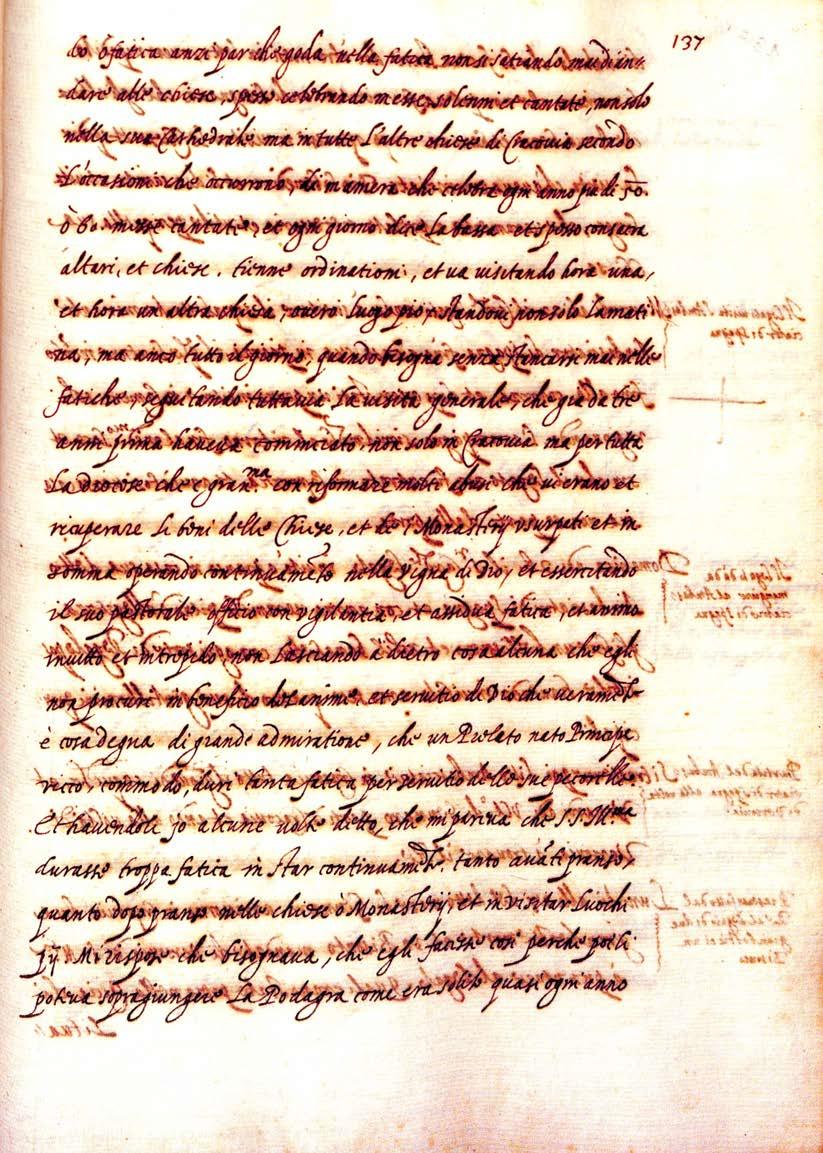 137
bo ò fatica anzi par che goda nella fatica non si satiando mai di an=
dare alle chiese, spesso celebrando messe solenni et cantate, non solo
nella sua Cathedrale ma in tutte l'altre chiese di Cracovia secōdo
l'occasioni che occorrono, di maniera che celebra ogni anno piu di 50.
ò 60. messe cantate, et ogni giorno dice la bassa et spesso consacra
altari, et chiese, tienne ordinationi, et va visitando hora una,
et hora un altra chiesa, overo luogo pio, standovi non solo la mati
na, ma anco tutto il giorno, quando bisogna senza stancarsi mai nelle
fatiche, seguitando tuttavia la visita generale, che gia da tre
anni prima haveva cominciato, non solo in Cracovia ma per tutta
La Diocese che è gran.ma con riformare molti abusi che vi erano et
ricuperare li beni delle Chiese, et de i Monasterij usurpati et in
somma operando continuamēte nella vigna di Dio, et essercitādo
il suo pastorale officio con vigilantia, et assidua fatica, et animo
invitto et intrepido, non lasciando à dietro cosa alcuna che egli
non procuri in beneficio del anime, et servitio de Dio che veramēte
è cosa degna di grande admiratione, che un Prelato nato Principe
ricco, commodo, duri tanta fatica per servitio delle sue pecorelle.
Et havendole jo alcune volte detto, che mi pareva che S.S. Ill.ma
durasse troppa fatica in star continuamēte. tanto avāti pranso,
quanto dopo pranso nelle chiese ò Monasterij, et in visitar Luochi
pij M. rispose che bisognava, che egli facesse cosi perche poi li
poteva sopragiungere La Podagra come era solito quasi ogni anno